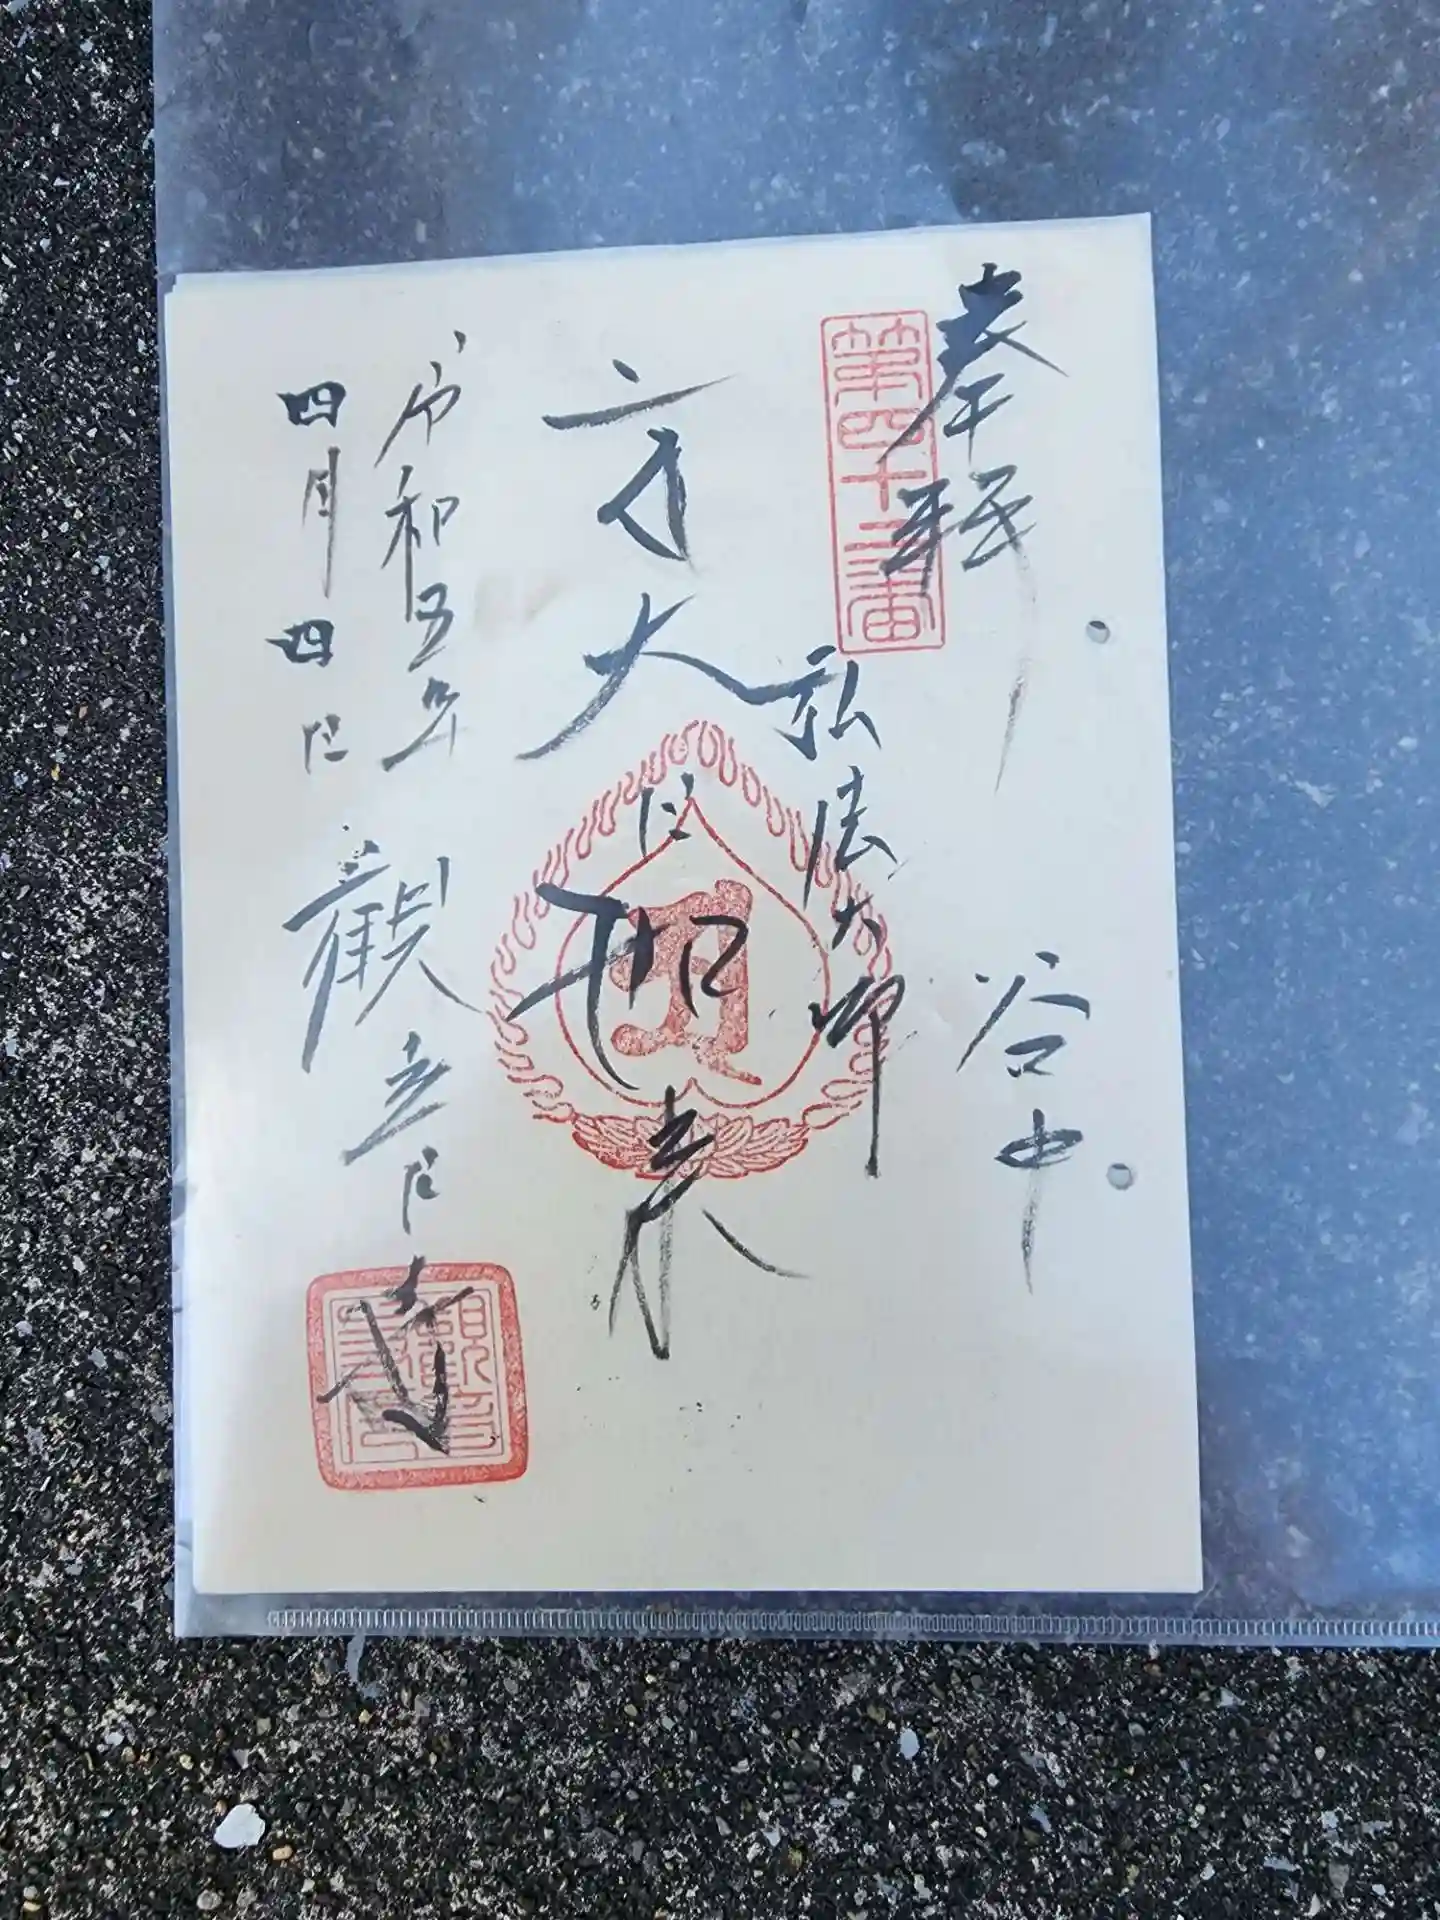 奉拝
谷中
第四十二番
弘法大師
大日如来
令和五年
四月四日
觀音寺